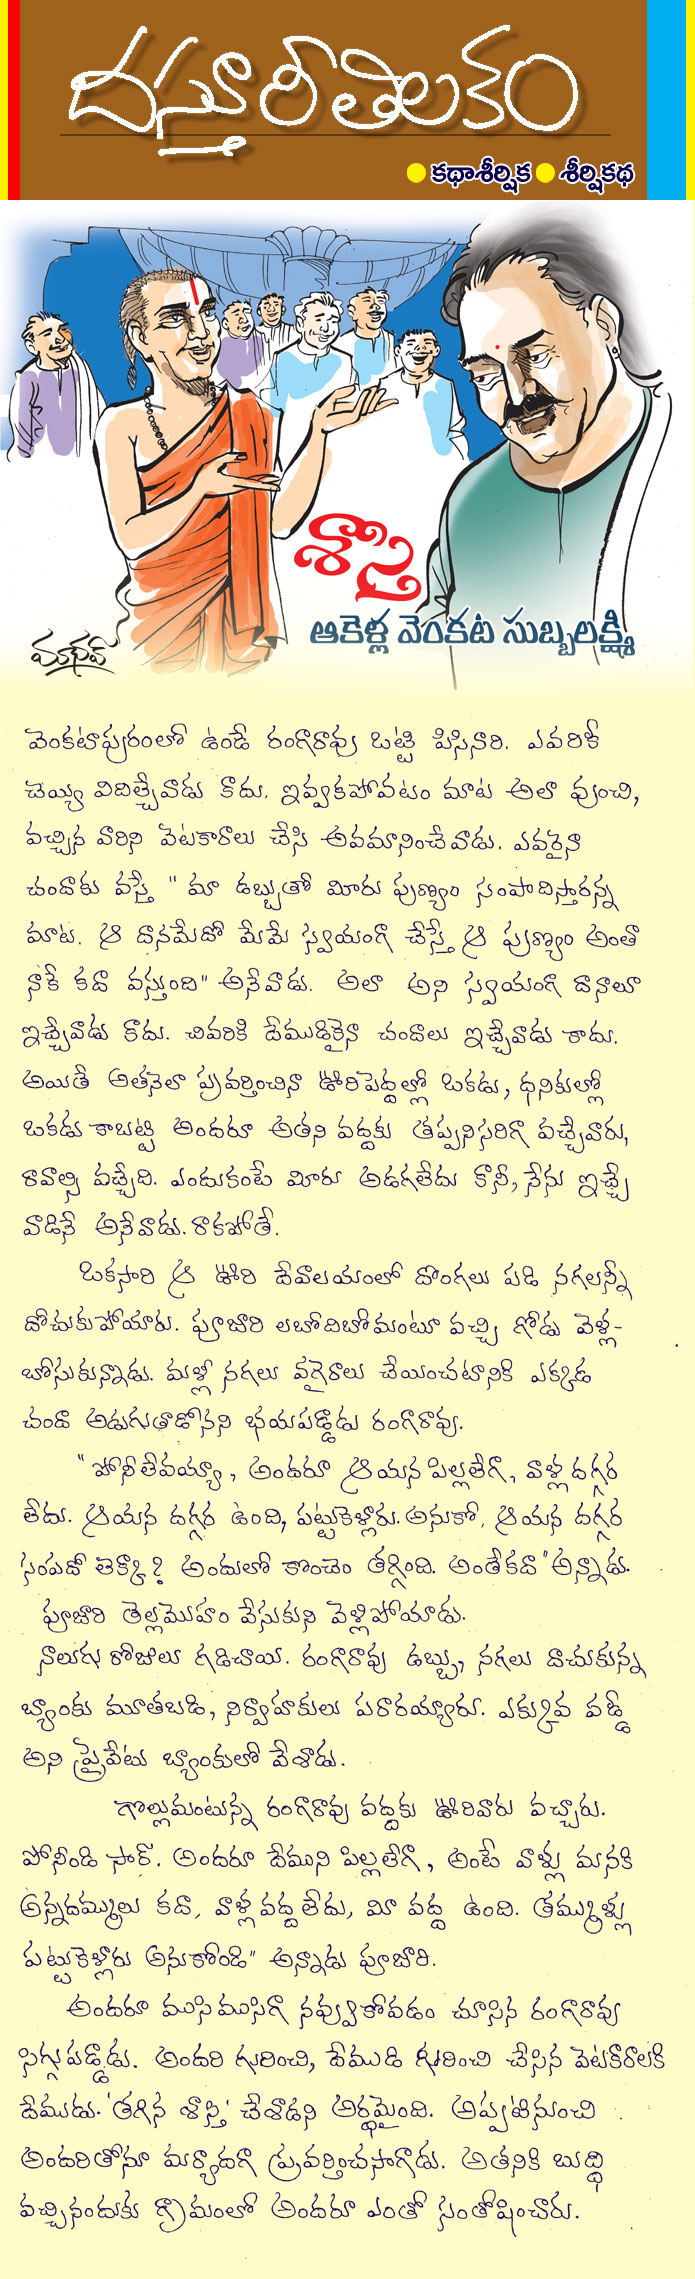 దస్తూరీ తిలకం
కథాశీర్షిక శీర్షికథ
శాస్తి
ఆకెళ్ల వెంకట సుబ్బలక్ష్మి
మాధవ్
వెంకటాపురంలో ఉండే రంగారావు ఒట్టి పిసినారి. ఎవరికీ
చెయ్యి విదిల్చేవాడు కాదు. ఇవ్వకపోవటం మాట అలా వుంచి,
వచ్చిన వారిని వెటకారాలు చేసి అవమానించేవాడు. ఎవరైనా
చందాకు వస్తే "మా డబ్బుతో మీరు పుణ్యం సంపాదిస్తారన్న
మాట. ఆ దానమేదో మేమే స్వయంగా చేస్తే ఆ పుణ్యం అంతా
నాకే కదా వస్తుంది" అనేవాడు. అలా అని స్వయంగా దానాలూ
ఇచ్చేవాడు కాదు. చివరికి దేముడికైనా చందాలు ఇచ్చేవాడు కాదు.
అయితే అతనెలా ప్రవర్తించినా ఊరిపెద్దల్లో ఒకడు, ధనికుల్లో
ఒకడు కాబట్టి అందరూ అతని వద్దకు తప్పనిసరిగా వచ్చేవారు,
రావాల్సి వచ్చేది. ఎందుకంటే మీరు అడగలేదు కానీ, నేను ఇచ్చే
వాడినే అనేవాడు. రాకపోతే.
ఒకసారి ఆ ఊరి దేవాలయంలో దొంగలు పడి నగలన్నీ
దోచుకుపోయారు. పూజారి లబోదిబోమంటూ వచ్చి గోడు వెళ్ల-
బోసుకున్నాడు. మళ్లీ నగలు వగైరాలు చేయించటానికి ఎక్కడ
చందా అడుగుతాడోనని భయపడ్డాడు రంగారావు.
"పోనీలేవయ్యా, అందరూ ఆయన పిల్లలేగా, వాళ్ల దగ్గర
లేదు. ఆయన దగ్గర ఉంది, పట్టుకెళ్లారు. అనుకో, ఆయన దగ్గర
సంపదో లెక్కా? అందులో కొంచెం తగ్గింది. అంతేకదా" అన్నాడు.
పూజారి తెల్లమొహం వేసుకుని వెళ్లిపోయాడు.
నాలుగు రోజులు గడిచాయి. రంగారావు డబ్బు, నగలు దాచుకున్న
బ్యాంకు మూతబడి, నిర్వాహకులు పరారయ్యారు. ఎక్కువ వడ్డీ
అని ప్రైవేటు బ్యాంకులో వేశాడు.
గొల్లుమంటున్న రంగారావు వద్దకు ఊరివారు వచ్చారు.
పోనీండి సార్. అందరూ దేముని పిల్లలేగా, అంటే వాళ్లు మనకి
అన్నదమ్ములు కదా, వాళ్ల వద్ద లేదు, మీ వద్ద ఉంది. తమ్ముళ్లు
పట్టుకెళ్లారు అనుకోండి" అన్నాడు పూజారి.
అందరూ ముసిముసిగా నవ్వుకోవడం చూసిన రంగారావు
సిగ్గుపడ్డాడు. అందరి గురించి, దేముడి గురించి చేసిన వెటకారాలకి
దేముడు. 'తగిన శాస్తి' చేశాడని అర్థమైంది. అప్పటినుంచి
అందరితోనూ మర్యాదగా ప్రవర్తించసాగాడు. అతనికి బుద్ధి
వచ్చినందుకు గ్రామంలో అందరూ ఎంతో సంతోషించారు.